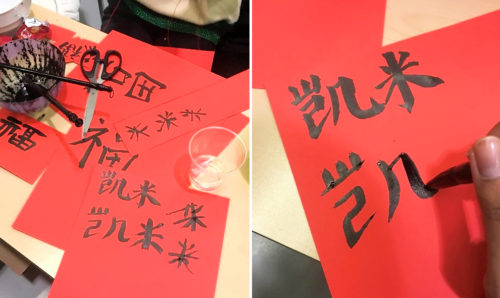 福
福
米米米
凯米
凯米
米
米
凯米
凯